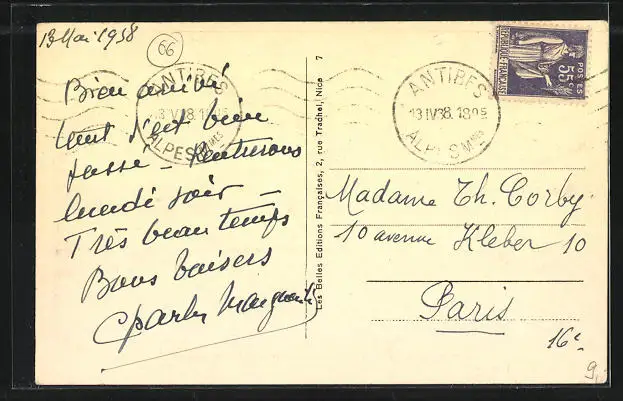 13 Mai 1938
66
Bien arrivé
tout s'est bien
passé - Rentrerons
lundi soir -
Très beau temps
Bons baisers
Charly Marguerite
ANTIBES
13 IV 38. 18 05
ALPES Mmes
Les Belles Editions Françaises, 2, rue Trachel, Nice 7
ANTIBES
13 IV 38. 18 05
ALPES Mmes
REPUBLIQUE-FRANÇAISE
POSTES
55c
Madame Th. Corby
10 avenue Kleber 10
Paris
16e
9,-